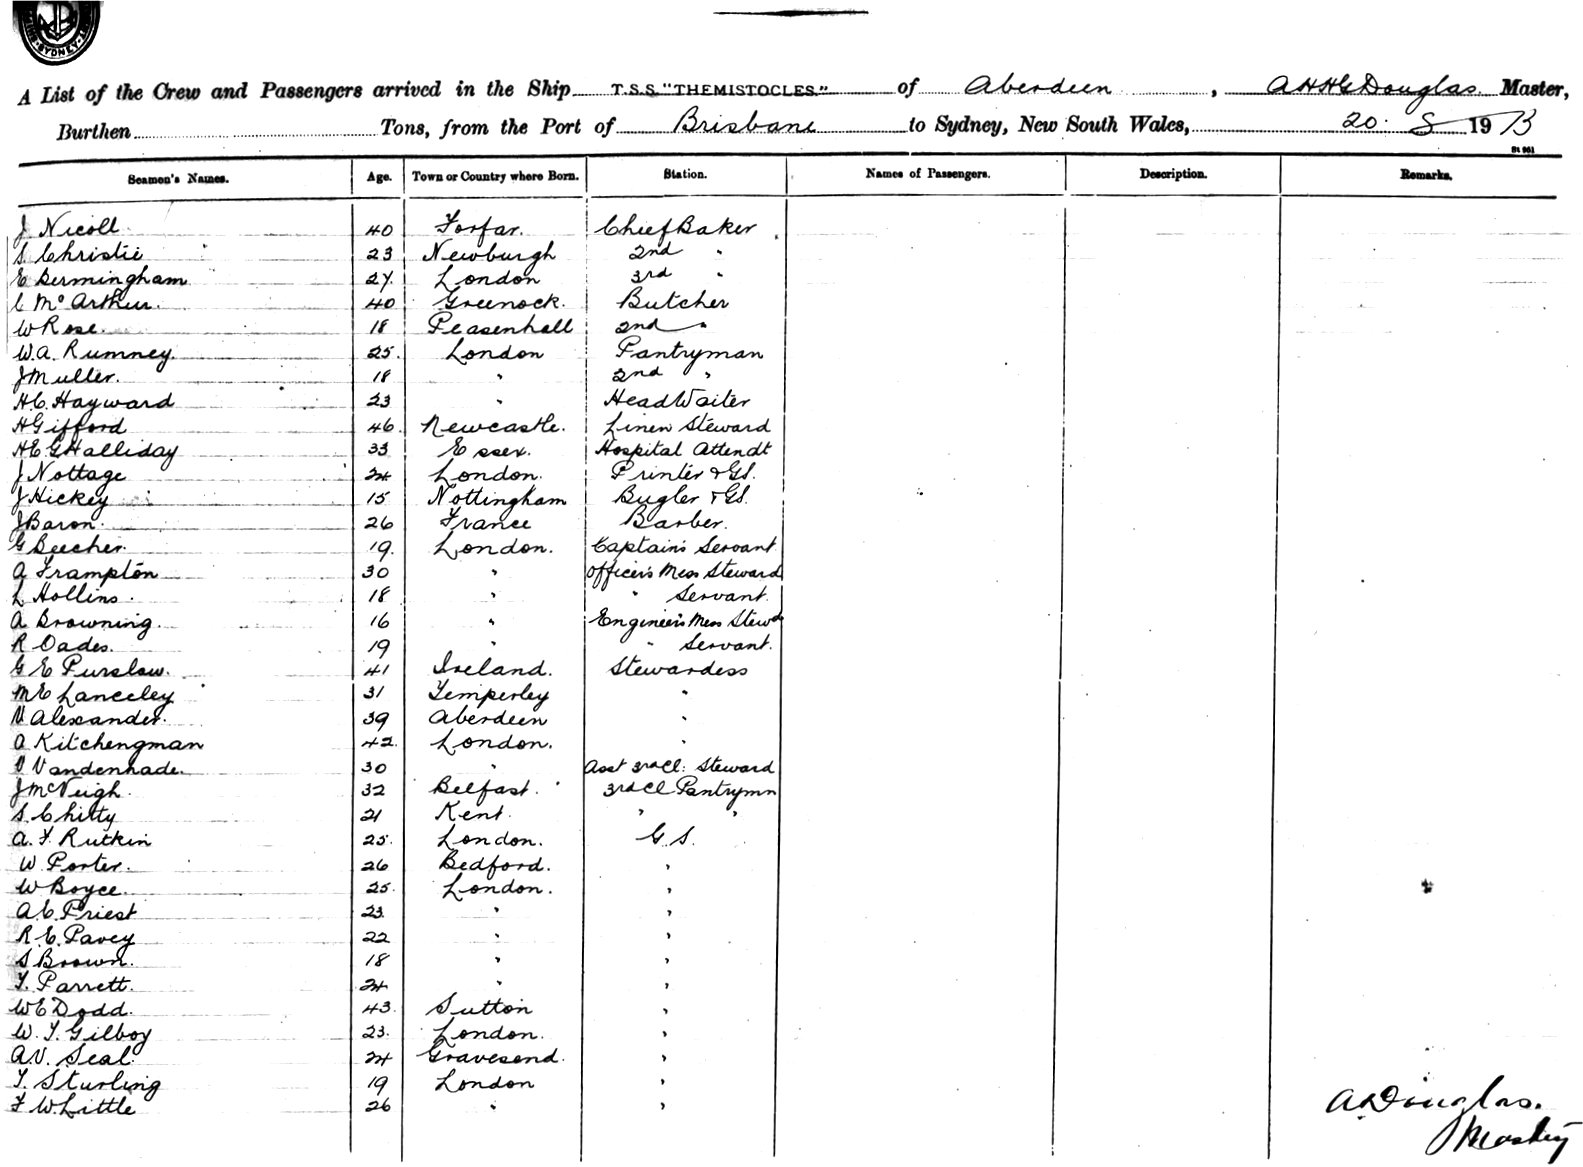 SYDNEY
A List of the Crew and Passengers arrived in the Ship T.S.S. "THEMISTOCLES." of Aberdeen, A H H G Douglas Master,
Burthen Tons, from the Port of Brisbane to Sydney, New South Wales, 20. 8 1913
St 961
Seamen's Names. Age. Town or Country where Born. Station. Names of Passengers. Description. Remarks.
J Nicoll 40 Forfar. Chief Baker
S Christie 23 Newburgh 2nd "
E Bermingham 27. London 3rd "
C McArthur. 40 Greenock. Butcher
W Rose. 18 Peasenhall 2nd "
W.A. Rumney. 25. London Pantryman
J Muller. 18 " 2nd "
H.C. Hayward 23 " Head Waiter
H Gifford 46. Newcastle. Linen Steward
H.E.G Halliday 33 Essex. Hospital Attendt
J Nottage 24 London. Printer & G.S.
J Hickey 15 Nottingham Bugler & G.S.
J Baron. 26 France Barber.
G Beecher. 19. London. Captain's Servant
A Frampton 30 " Officer's Mess Steward
L Hollins. 18 " " Servant.
A Browning. 16 " Engineer's Mess Stewd
R Oades. 19 " " Servant.
G E Purslow. 41 Ireland. Stewardess
M E Lanceley 31 Temperley "
N Alexander. 39 Aberdeen "
A Kitchengman 42. London. "
V Vandenhade. 30 " Asst 3rd Cl. Steward
J McVeigh. 32 Belfast. 3rd Cl Pantrymn
S. Chitty 21 Kent " "
A. F. Rutkin 25. London. G.S.
W Porter. 26 Bedford. "
W Boyce. 25. London. "
A.C. Priest 23. " "
R.E. Pavey 22 " "
S Brown. 18 " "
T. Parrett. 24 " "
W E Dodd. 43. Sutton "
W. T. Gilboy 23. London. "
A.V. Seal 24 Gravesend. "
T. Sturling 19 London "
F W. Little 26 " "
A Douglas.